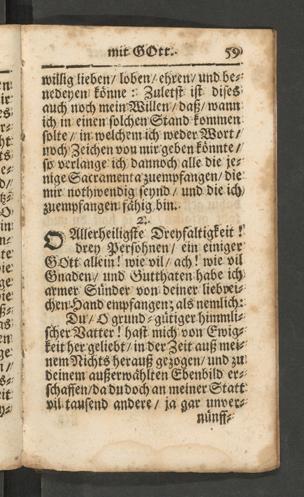 mit GOtt. 59
willig lieben / loben / ehren / und be-
nedeyen könne: Zuletst ist dises
auch noch mein Willen / daß / wann
ich in einen solchen Stand kommen
solte / in welchem ich weder Wort /
noch Zeichen von mir geben könnte /
so verlange ich dannoch alle die je-
nige Sacramenta zuempfangen / die
mir nothwendig seynd / und die ich
zuempfangen fähig bin.
2.
O Allerheiligste Dreyfaltigkeit!
drey Persohnen / ein einiger
GOtt allein! wie vil / ach! wie vil
Gnaden / und Gutthaten habe ich
armer Sünder von deiner liebrei-
chen Hand empfangen; als nemlich:
Du / O grund-gütiger himmli-
scher Vatter! hast mich von Ewig-
keit her geliebt / in der Zeit auß mei-
nem Nichts herauß gezogen / und zu
deinem außerwählten Ebenbild er-
schaffen / da du doch an meiner Statt
vil tausend andere / ja gar unver-
nünff-